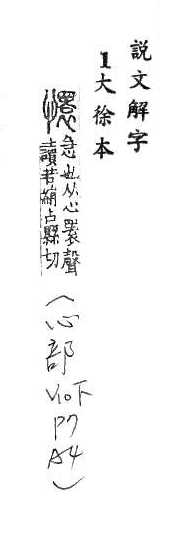 説文解字
1大徐本
懁急也从心瞏聲
讀若絹古縣切
(心部 V10下 P7 A4)